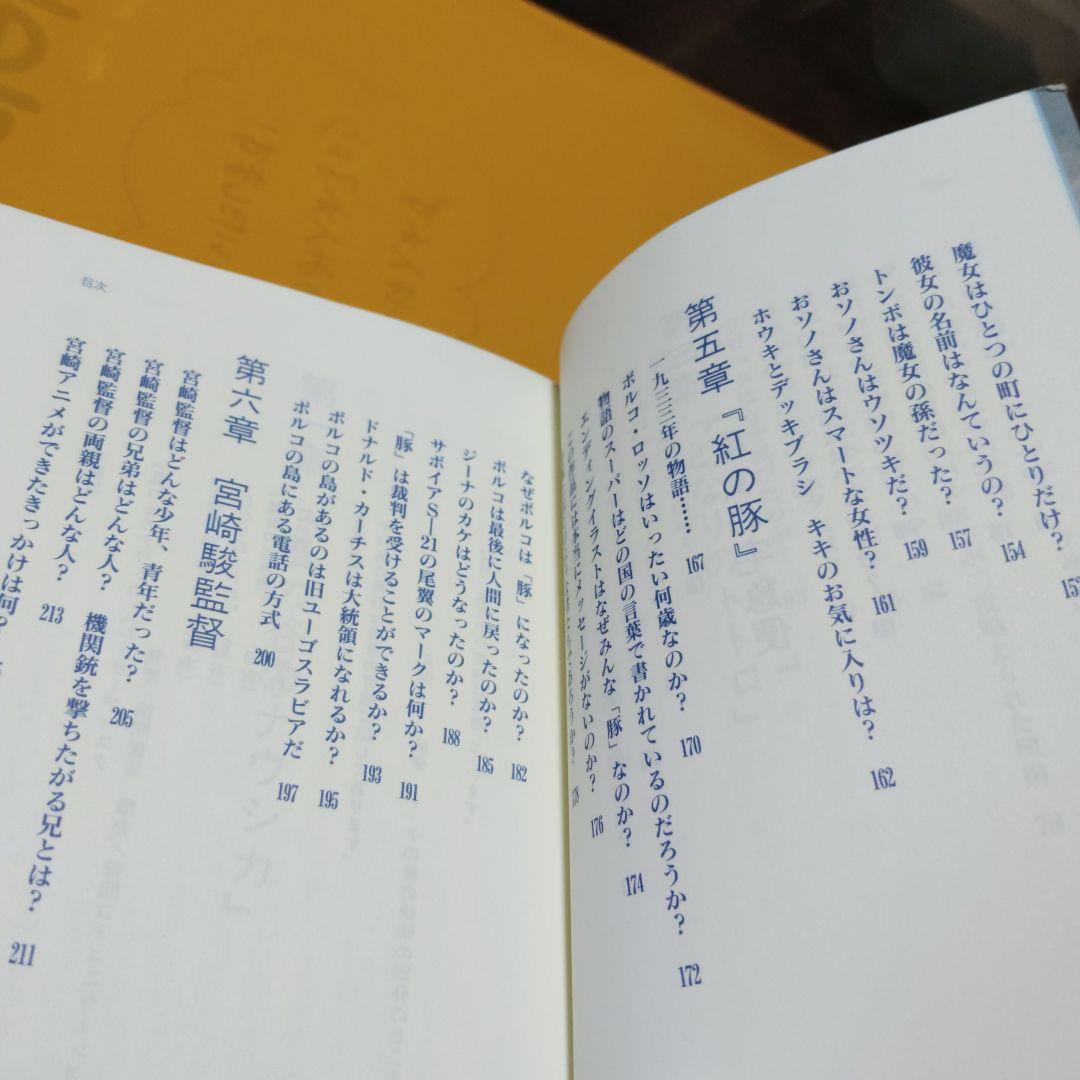 魔女はひとつの町にひとりだけ? 153
彼女の名前はなんていうの? 154
トンボは魔女の孫だった? 157
おソノさんはウソツキだ? 159
おソノさんはスマートな女性? 161
ホウキとデッキブラシ キキのお気に入りは? 162
第五章 『紅の豚』
一九三三年の物語…… 167
ポルコ・ロッソはいったい何歳なのか? 170
物語のスーパーはどの国の言葉で書かれているのだろうか? 172
エンディングイラストはなぜみんな「豚」なのか? 174
この作品には本当にメッセージがないのか? 176
178
目次
なぜポルコは「豚」になったのか? 182
ポルコは最後に人間に戻ったのか? 185
ジーナのカケはどうなったのか? 188
サボイアS—21の尾翼のマークは何か? 191
「豚」は裁判を受けることができるか? 193
ドナルド・カーチスは大統領になれるか? 195
ポルコの島があるのは旧ユーゴスラビアだ 197
ポルコの島にある電話の方式 200
第六章 宮崎駿監督
宮崎監督はどんな少年、青年だった? 205
宮崎監督の兄弟はどんな人? 機関銃を撃ちたがる兄とは? 211
宮崎監督の両親はどんな人? 213
宮崎アニメができたきっかけは何?